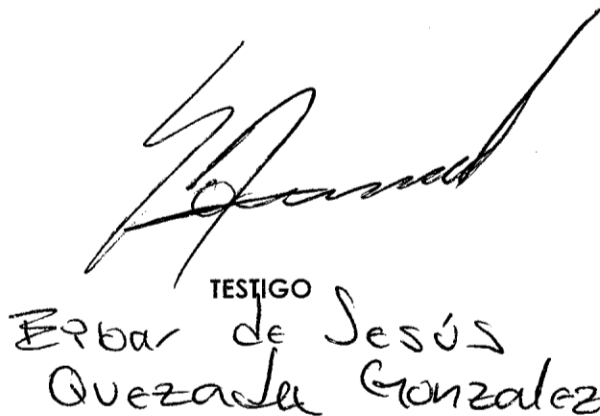 TESTIGO
de Jesús
Quezada Gonzalez